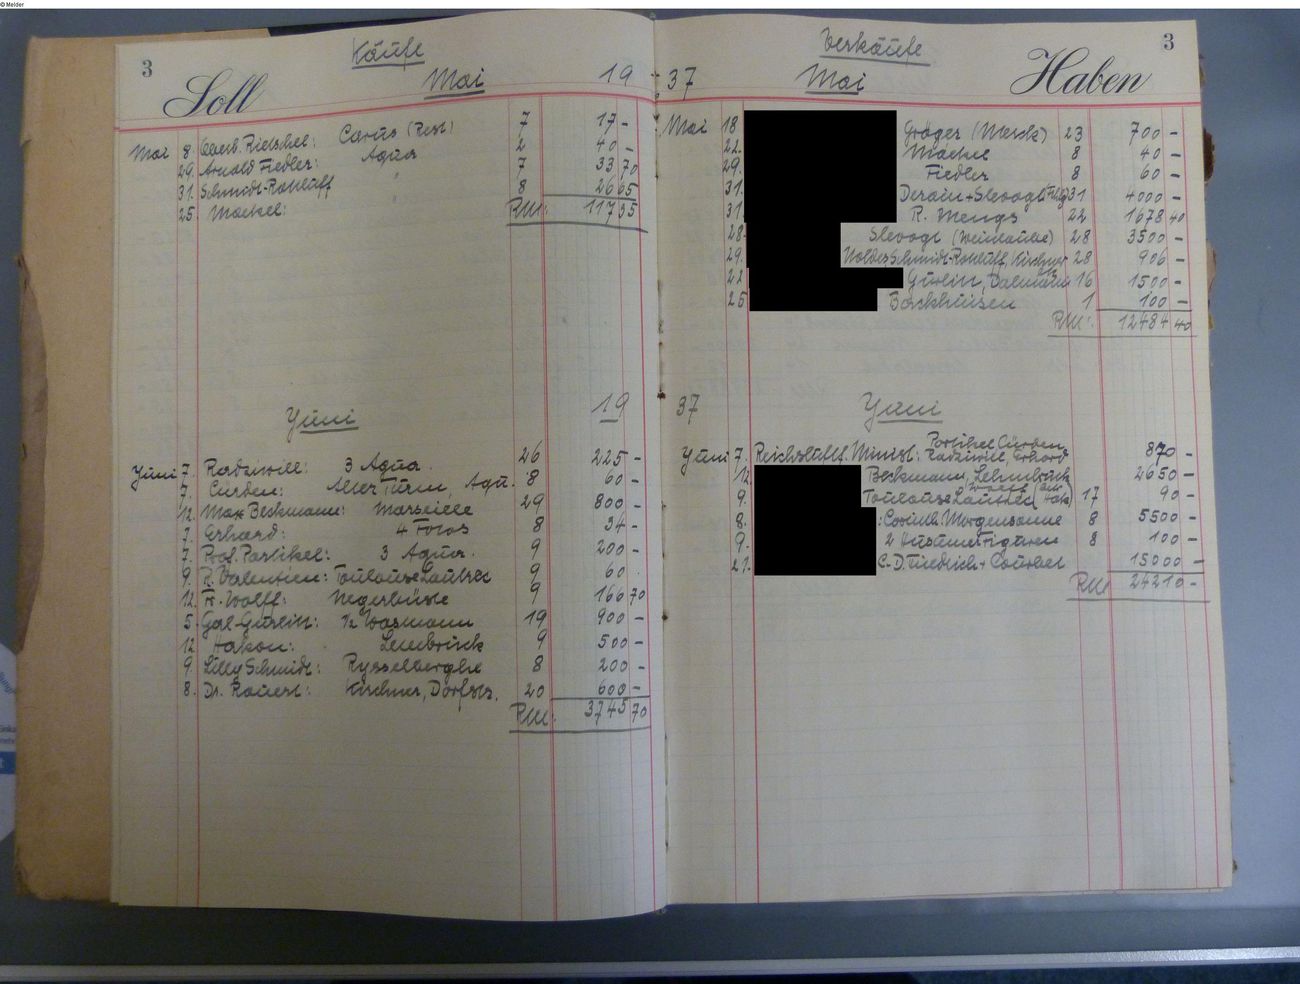 © Melder
3 Käufe
Soll Mai 19
Mai 8. Oberb. Rietschel: Carus (Rest) 7 17 -
29. Arnold Fiedler: Aqua 2 40 -
31. Schmidt-Rottluff " 7 33 70
25. Mackel: 8 26 65
RM: 117 35
Yuni 19
Yuni 7. Radziwill: 3 Aqua. 26 225 -
7. Cürden: Alter Turm, Aqu. 8 60 -
12. Max Beckmann: Marseille 29 800 -
7. Erhard: 4 Fotos 8 34 -
7. Prof. Partikel: 3 Aqua. 9 200 -
9. R. Valentien: Toulouse Lautrec 9 60.
12. Fr. Wolff: Negerbüste 9 166 70
5. Gal-Gurlitt: ½ Wasmann 19 900 -
12 Hakon: Lembruck 9 500 -
9. Lilly Schmidt: Rysselberghe 8 200 -
8. Dr. Rauert: Kirchner, Dorfstr. 20 600 -
RM: 3745 70
Verkäufe 3
37 Mai Haben
Mai 18 Gröger (Merck) 23 700 -
22. Mackel 8 40 -
29. Fiedler 8 60 -
31. Derain + Slevogt 31 4000 -
31. R. Mengs 22 1678 40
28. Slevogt (Weinlaube) 28 3500 -
29. Nolde, Schmidt-Rottluff, Kirchner 28 906 -
22 Gurlitt, Dalmann 16 1500 -
25 Backhuisen 1 100 -
RM: 12484 40
37 Yuni
Partikel Cürden
Yuni 7. Reichsluftf. Minist.: Radziwill, Erhard 870 -
12. Beckmann, Lehmbruck 2650 -
9. Toulouse Lautrec 17 90 -
8. : Corinth Morgensonne 8 5500 -
9. 2 Husumer Figuren 8 100 -
21. C.D. Friedrich + Courbet 15000 -
RM 24210 -